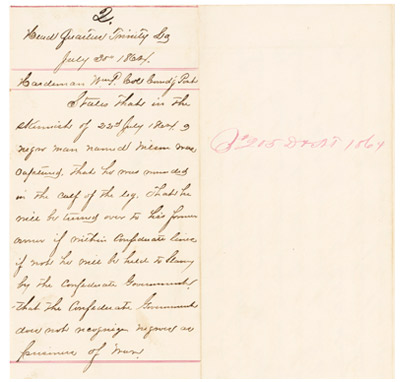 2.
Head Quarters Trinity La
July 30th 1864.
Hardeman Wm P. Col Comdg Post
States that in the
skirmish of 22d July 1864 a
negro man named Wilson was
captured, that he was wounded
in the calf of the leg. That he
will be turned over to his former
owner if within Confederate lines
if not he will be held to slavery
by the Confederate Government.
that the Confederate Government
does not recognize negroes as
prisoners of War.
1864